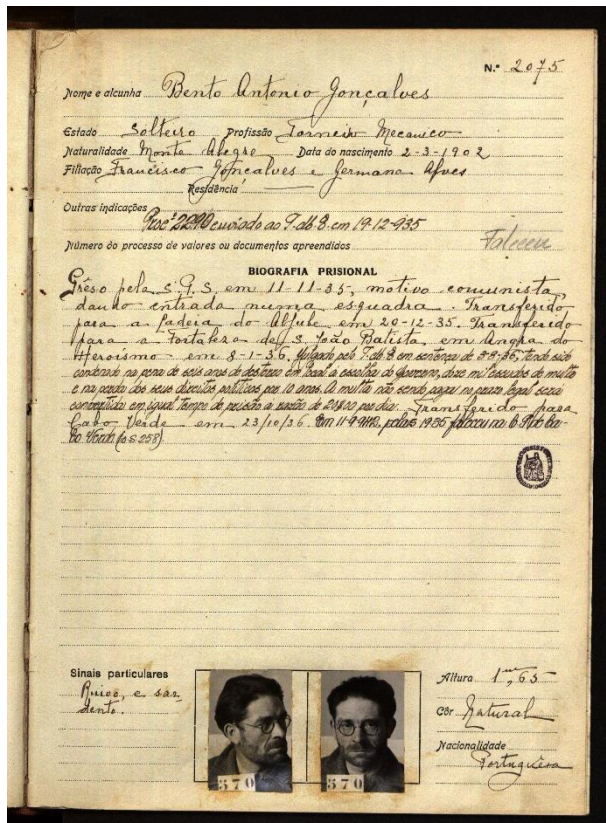 N.º 2075
Nome e alcunha Bento Antonio Gonçalves
Estado Solteiro Profissão Torneiro Mecanico
Naturalidade Monte Alegre Data do nascimento 2-3-1902
Filiação Francisco Gonçalves e Germana Alves
Residência
Outras indicações
Proc.º 2290 enviado ao em 19-12-935
Número do processo de valores ou documentos apreendidos Faleceu
BIOGRAFIA PRISIONAL
Prêso pela S.G.S. em 11-11-35, motivo comunista,
dando entrada numa esquadra. Transferido
para a Cadeia do Aljube em 20-12-35. Transferido
para a Fortaleza de S. João Batista em Angra do
Heroismo - em 8-1-36. Julgado pelo em sentença de tendo sido
condenado na pena de seis anos de destêrro em local á escolha do Governo, doze mil escudos de multa
e na perda dos seus direitos politicos por 10 anos. A multa não sendo paga no prazo legal sera
convertida em igual tempo de prisão á razão de por dia. Transferido para
Cabo Verde em 23/10/36. Em 11-9-942, pelas faleceu na
bo Verde (o.s. 258).
Sinais particulares
Ruivo, e sar-
dento.
570
570
Altura 1m,65
Côr Natural
Nacionalidade
Portuguêsa